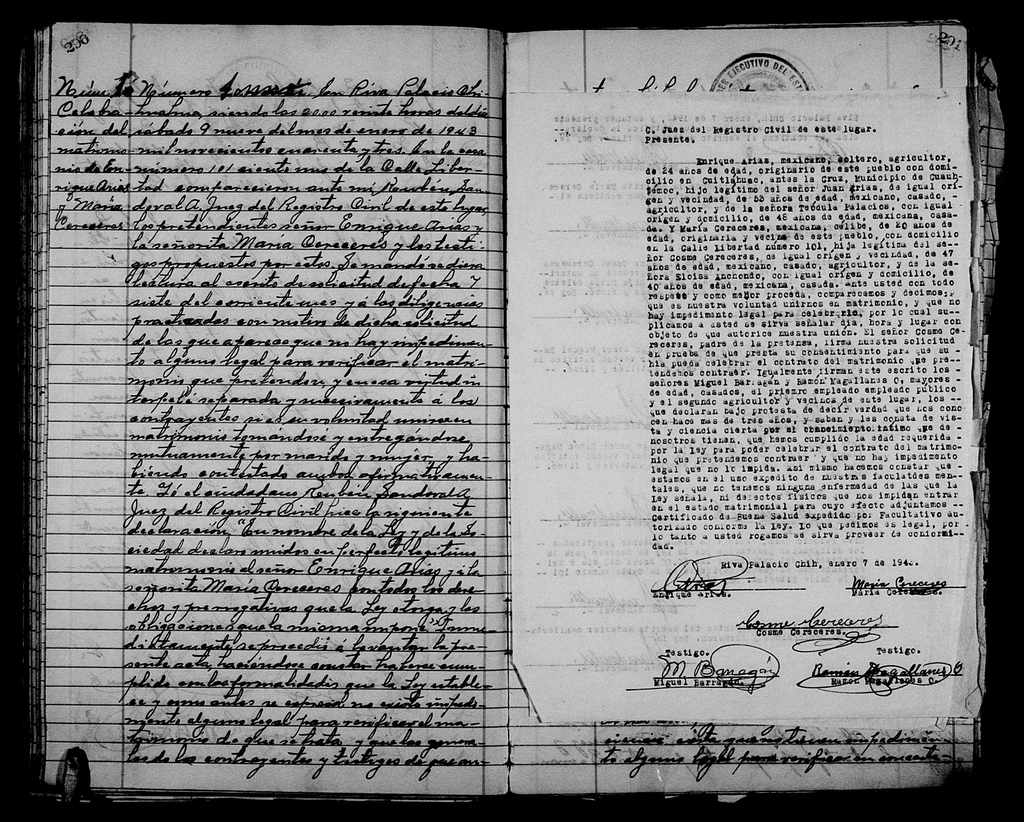 290
Número Número En Riva Palacio Chi-
Celebra- huahua, siendo las 20.00 veinte horas del día
ción del sábado 9 nueve del mes de enero de 1943
matrimo- mil novecientos cuarenta y tres. En la casa
nio de En- número 101 ciento uno de la Calle Liber-
rique Arias tad comparecieron ante mí, Rubén San-
y María doval A. Juez del Registro Civil de este lugar,
Cereceres los pretendientes señor Enrique Arias y
la señorita María Cereceres y los testi-
gos propuestos por estos. Se mandó se diera
lectura al escrito de solicitud de fecha 7
siete del corriente mes y á las diligencias
practicadas con motivo de dicha solicitud
de las que aparece que no hay impedimen-
to alguno legal para verificar el matri-
monio que pretenden y en esa virtud in
terpelé separada y sucesivamente á los
contrayentes si es su voluntad unirse en
matrimonio tomandose y entregandose
mutuamente por marido y mujer, y ha-
biendo contestado ambos afirmativamen-
te. Yó el ciudadano Rubén Sandoval A.
Juez del Registro Civil hice la siguiente
declaración "En nombre de la Ley y de la So-
ciedad declaro unidos en perfecto, legítimo
matrimonio al señor Enrique Arias y á la
señorita María Cereceres con todos los dere-
chos y prerrogativas que la Ley otorga y las
obligaciones que la misma impone". Inme-
diatamente se procedió á levantar la pre-
sente acta, haciendose constar haberse cum-
plido con las formalidades que la Ley estable-
ce y como antes se expresa no existe impedi-
mento alguno legal para verificar el ma-
trimonio de que se trata, y que las genera-
les de los contrayentes y testigos de que an-
291
EJECUTIVO DEL EST
C. Juez del Registro Civil de este lugar.
Presente.
Enrique Arias, mexicano, soltero, agricultor,
de 24 años de edad, originario de este pueblo con domi-
cilio en Cuitláhuac, antes la Cruz, Municipio de Cuauh-
temoc, hijo legítimo del señor Juan Arias, de igual orí-
gen y vecindad, de 55 años de edad, mexicano, casado, -
agricultor, y de la señora Teódula Palacios, con igual
origen y domicilio, de 48 años de edad, mexicana, casa-
da. Y María Cereceres, mexicana, célibe, de 20 años de
edad, originaria y vecina de este pueblo, con domicilio
en la Calle Libertad número 101, hija legítima del se-
ñor Cosme Cereceres, de igual origen y vecindad, de 47
años de edad, mexicano, casado, agricultor, y de la se-
ñora Eloisa Anchondo, con igual origen y domicilio, de
40 años de edad, mexicana, casada. Ante usted con todo
respeto y como mejor proceda, comparecemos y decimos:
que es nuestra voluntad unirnos en matrimonio, y que no
hay impedimento legal para celebrarlo, por lo cual su-
plicamos a usted se sirva señalar día, hora y lugar con
objeto de que autorice nuestra unión. El señor Cosme Ce-
receres, padre de la pretensa, firma nuestra solicitud
en prueba de que presta su consentimiento para que su-
hija pueda celebrar el contrato del matrimonio que pre-
tendemos contraer. Igualmente firman este escrito los-
señores Miguel Barragán y Ramón Magallanes O, mayores-
de edad, casados, el priemro empleado empleado público
y el segundo agricultor y vecinos de este lugar, los -
que declaran bajo protesta de decir verdad que nos cono
cen hace mas de tres años, y saben y les consta de vis-
ta y ciencia cierta por el conocimiento íntimo que de-
nosotros tienen, que hemos cumplido la edad requerida-
por la ley para poder celebrar el contrato del matrimo-
nio que pretendemos contraer y que no hay impedimento
legal que no lo impida. Así mismo hacemos constar que-
estamos en el uso expedito de nuestras facultades men-
tales, que no tenemos ninguna enfermedad de las que la
Ley señala, ni defectos físicos que nos impidan entrar
en el estado matrimonial para cuyo efecto adjuntamos -
Certificado de Buena Salud expedido por Facultativo au-
torizado conforme la ley. Lo que pedimos es legal, por
lo tanto a usted rogamos se sirva proveer de conformi-
dad.
Riva Palacio Chih, enero 7 de 1943.
María Cereceres
Enrique Arias. María Cereceres.
Cosme Cereceres
Cosme Cereceres.
Testigo. Testigo.
M Barragán Ramón Magallanes O
Miguel Barragán. Ramón Magallanes O.
ciencia cierta que no tienen impedimen-
to alguno legal para verificar en concerta-